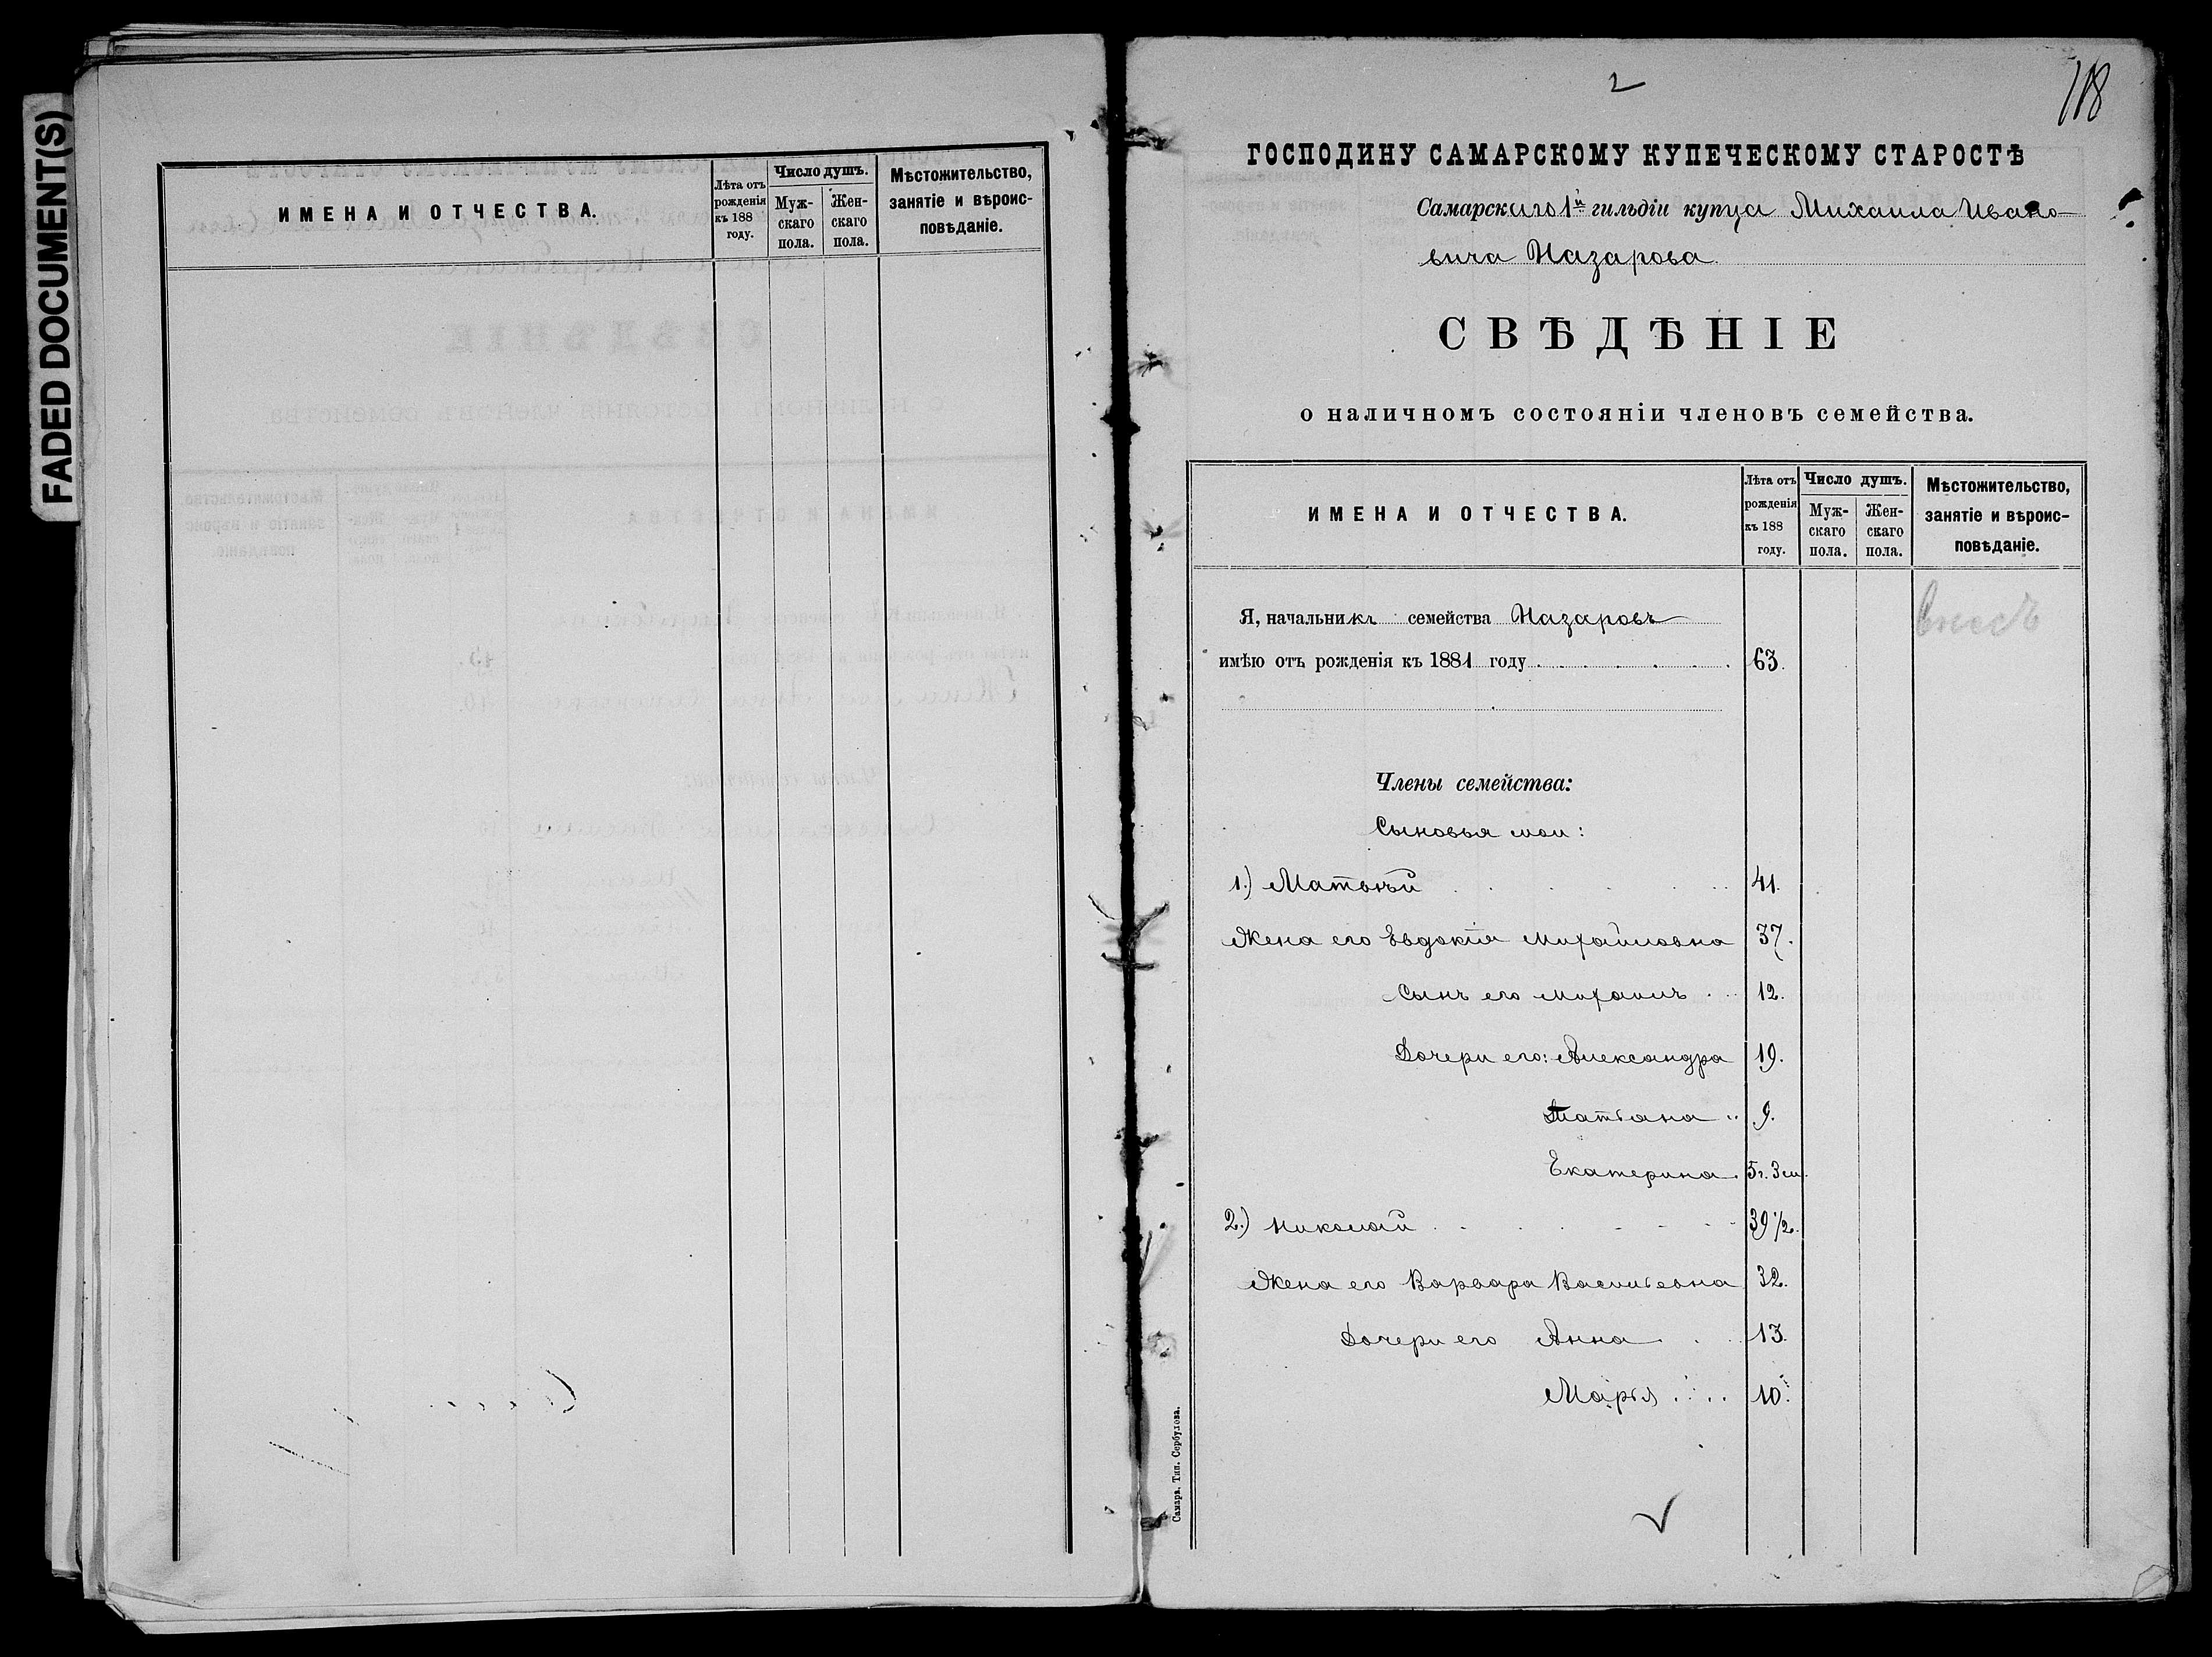 FADED DOCUMENT(S)
ИМЕНА И ОТЧЕСТВА.
Лѣта отъ рожденія къ 188 году.
Число душъ.
Мужскаго пола.
Женскаго пола.
Мѣстожительство, занятіе и вѣроисповѣданіе.
2
118
ГОСПОДИНУ САМАРСКОМУ КУПЕЧЕСКОМУ СТАРОСТѢ
Самарскаго 1й гильдіи купца Михаила Ивано-
вича Назарова
СВѢДѢНІЕ
о наличномъ состояніи членовъ семейства.
ИМЕНА И ОТЧЕСТВА.
Лѣта отъ рожденія къ 188 году.
Число душъ.
Муж-скаго пола.
Жен-скаго пола.
Мѣстожительство, занятіе и вѣроис-повѣданіе.
Я, начальникъ семейства Назаровъ
имѣю отъ рожденія къ 1881 году 63.
Члены семейства:
Сыновья мои:
1.) Матвѣй 41.
Жена его Евдокія Михайловна 37.
Сынъ его Михаилъ 12.
Дочери его: Александра 19.
Татьяна 9.
Екатерина 5 г. 3 м.
2.) Николай 39 1/2.
Жена его Варвара Васильевна 32.
Дочери его Анна 13.
Марья 10.
Самара. Тип. Сербулова.